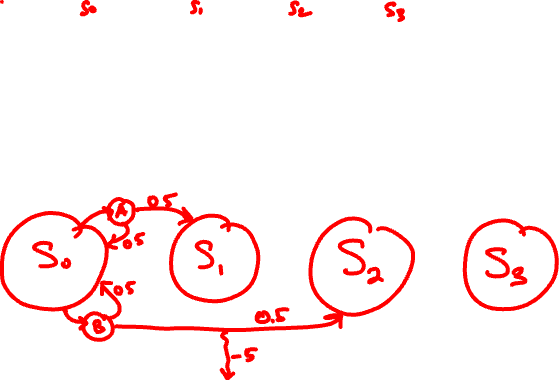 S0 S1 S2 S3
A 0.5
0.5
S0 S1 S2 S3
0.5
B 0.5
-5